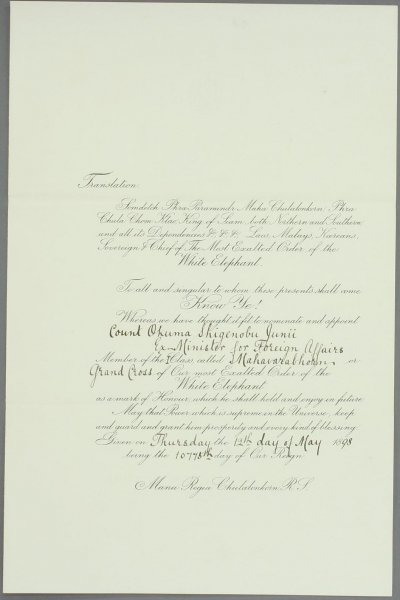 Translation.
Somdetch Phra Paramindr Maha Chulalonkorn, Phra
Chula Chom Klao, King of Siam, both Northern and Southern
and all its Dependencies &. &. &. Laos, Malays, Koreans,
Sovereign & Chief of The Most Exalted Order of the
White Elephant.
To all and singular to whom these presents shall come
Know Ye!
Whereas we have thought it fit to nominate and appoint
Count Okuma Shigenobu Junii
Ex-Minister for Foreign Affairs
Member of the Class called Mahavarabhorn or
Grand Cross of Our most Exalted Order of the
White Elephant
as a mark of Honour which he shall hold and enjoy in future
May that Power which is supreme in the Universe, keep
and guard and grant him prosperity and every kind of blessing
Given on Thursday the 12th day of May 1898
being the 10778th day of Our Reign
Manu Regia Chulalonkorn R. S.